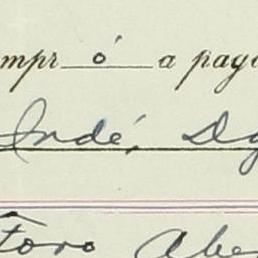 mpr ó a paga
Indé, Dg
toro Abe